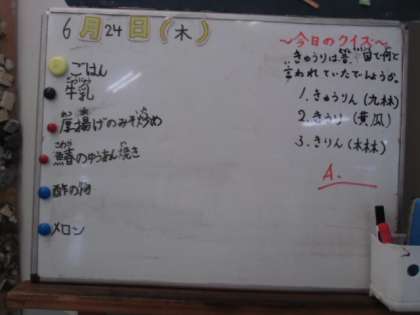 6月24日(木)
ごはん
牛乳
厚揚げのみそ炒め
鰆のゆうあん焼き
酢の物
メロン
~今日のクイズ~
きゅうりは昔、何と
言われていたでしょうか。
1.きゅうりん(九林)
2.きうり(黄瓜)
3.きりん(木林)
A.